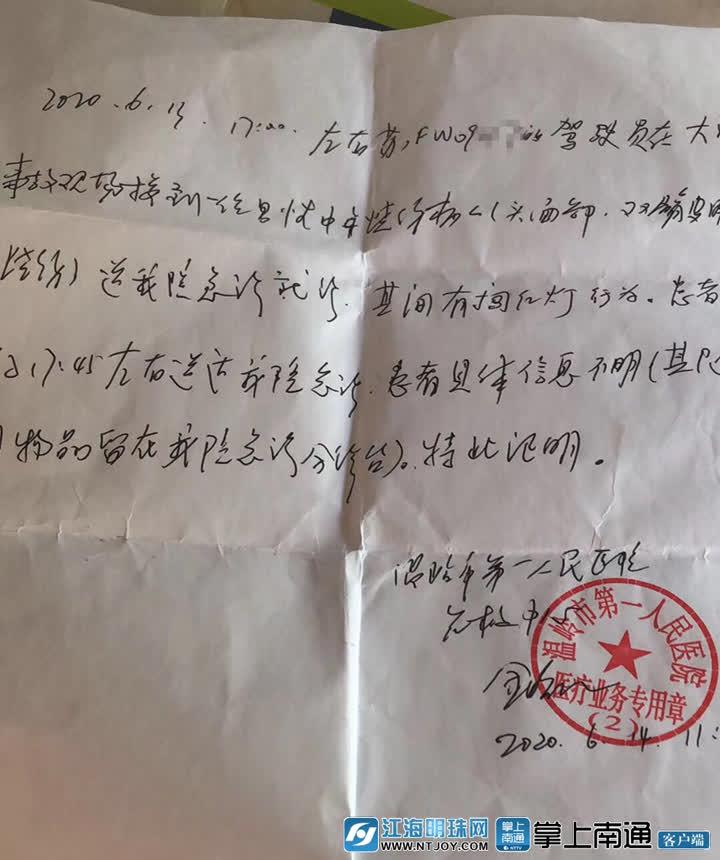 2020.6.13. 17:00. 左右苏FW09 驾驶员在大
事故现场接到一位患 中年烧伤病人(头面部、双
烧伤)送我院急诊就诊.其间有闯红灯行为。患者
17:45左右送达我院急诊.患者具体信息不明(其
物品留在我院急诊分诊台)。特此证明。
温岭市第一人民医院
急救中心
2020. 6. 14. 11:
温岭市第一人民医院
医疗业务专用章
(2)
江海明珠网
WWW.NTJOY.COM
掌上南通
NTTV
掌上南通 客户端